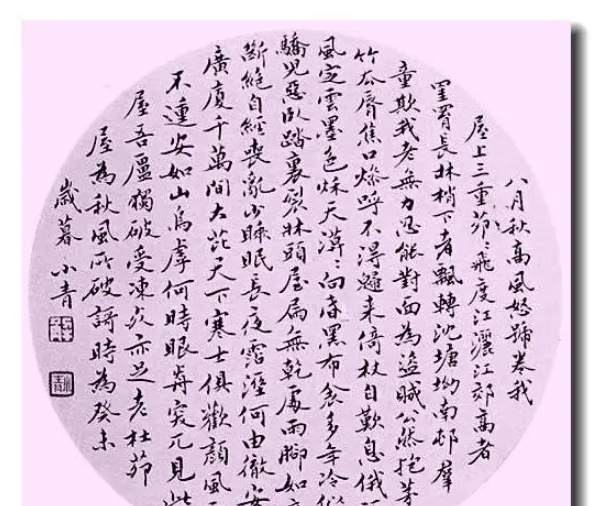 八月秋高風怒號卷我
屋上三重茆〻飛度江灑江郊高者
罣罥長林梢下者飄轉沈塘坳南邨羣
童欺我老無力忍能對面為盜賊公然抱茅
竹去脣焦口燥呼不得歸来倚杖自歎息俄
風定雲墨色秋天漠〻向昏黑布衾多年冷似
驕兒惡臥踏裏裂牀頭屋屚無乾處雨腳如
斷絕自經喪亂少睡眠長夜霑溼何由徹安
廣廈千萬間大庇天下寒士俱歡顏風
不動安如山烏虖何時眼前突兀見此
屋吾廬獨破受凍死亦足老杜茆
屋為秋風所破謌時為癸未
歲暮小青